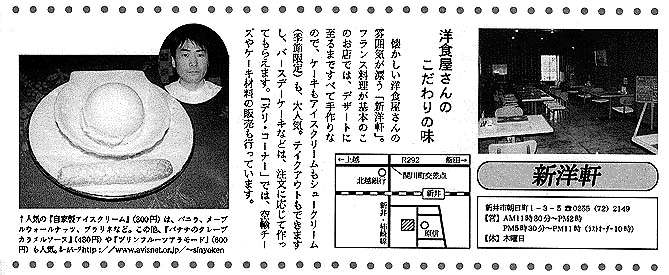 洋食屋さんの
こだわりの味
懐かしい洋食屋さんの
雰囲気が漂う「新洋軒」。
フランス料理が基本のこ
のお店では、デザートに
至るまですべて手作りな
ので、ケーキもアイスクリームもシュークリーム
(季節限定)も、大人気。テイクアウトもできます
し、バースデーケーキなどは、注文に応じて作っ
てもらえます。「デリ・コーナー」では、空輸チー
ズやケーキ材料の販売も行っています。
↑人気の『自家製アイスクリーム』(300円)は、バニラ、メープ
ルウォールナッツ、プラリネなど。この他、『バナナのクレープ
カラメルソース』(480円)や『プリンフルーツアラモード』(600
円)も人気。ホームページhttp://www.avisnet.or.jp/~sinyoken
←上越
R292
飯田→
北越銀行
関川町交差点
新井
新井・柿崎線
原信
新洋軒
新井市朝日町1-3-5 ☎0255 (72) 2149
【営】AM11時30分~PM2時
PM5時30分~PM11時 (ラストオーダー10時)
【休】木曜日